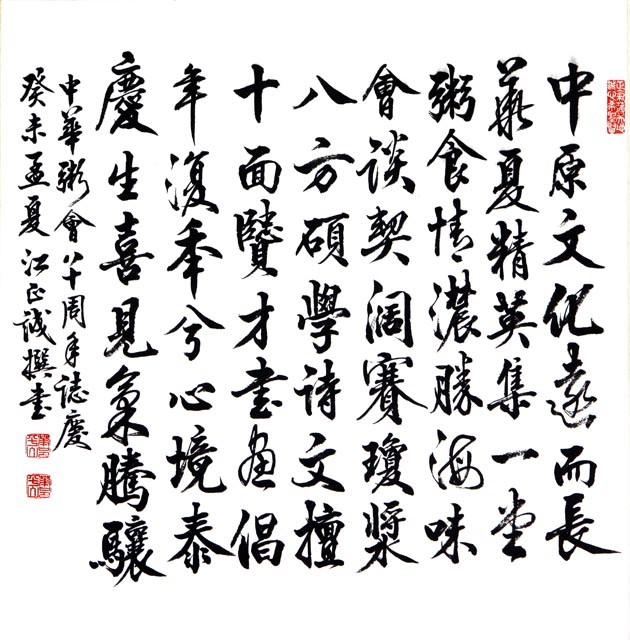 中原文化遠而長
華夏精英集一堂
粥食情濃勝海味
會談契闊賽瓊漿
八方碩學诗文擅
十面賢才書画倡
年復年兮心境泰
慶生喜見氣騰驤
中華粥會八十周年誌慶
癸未孟夏 江正誠撰書